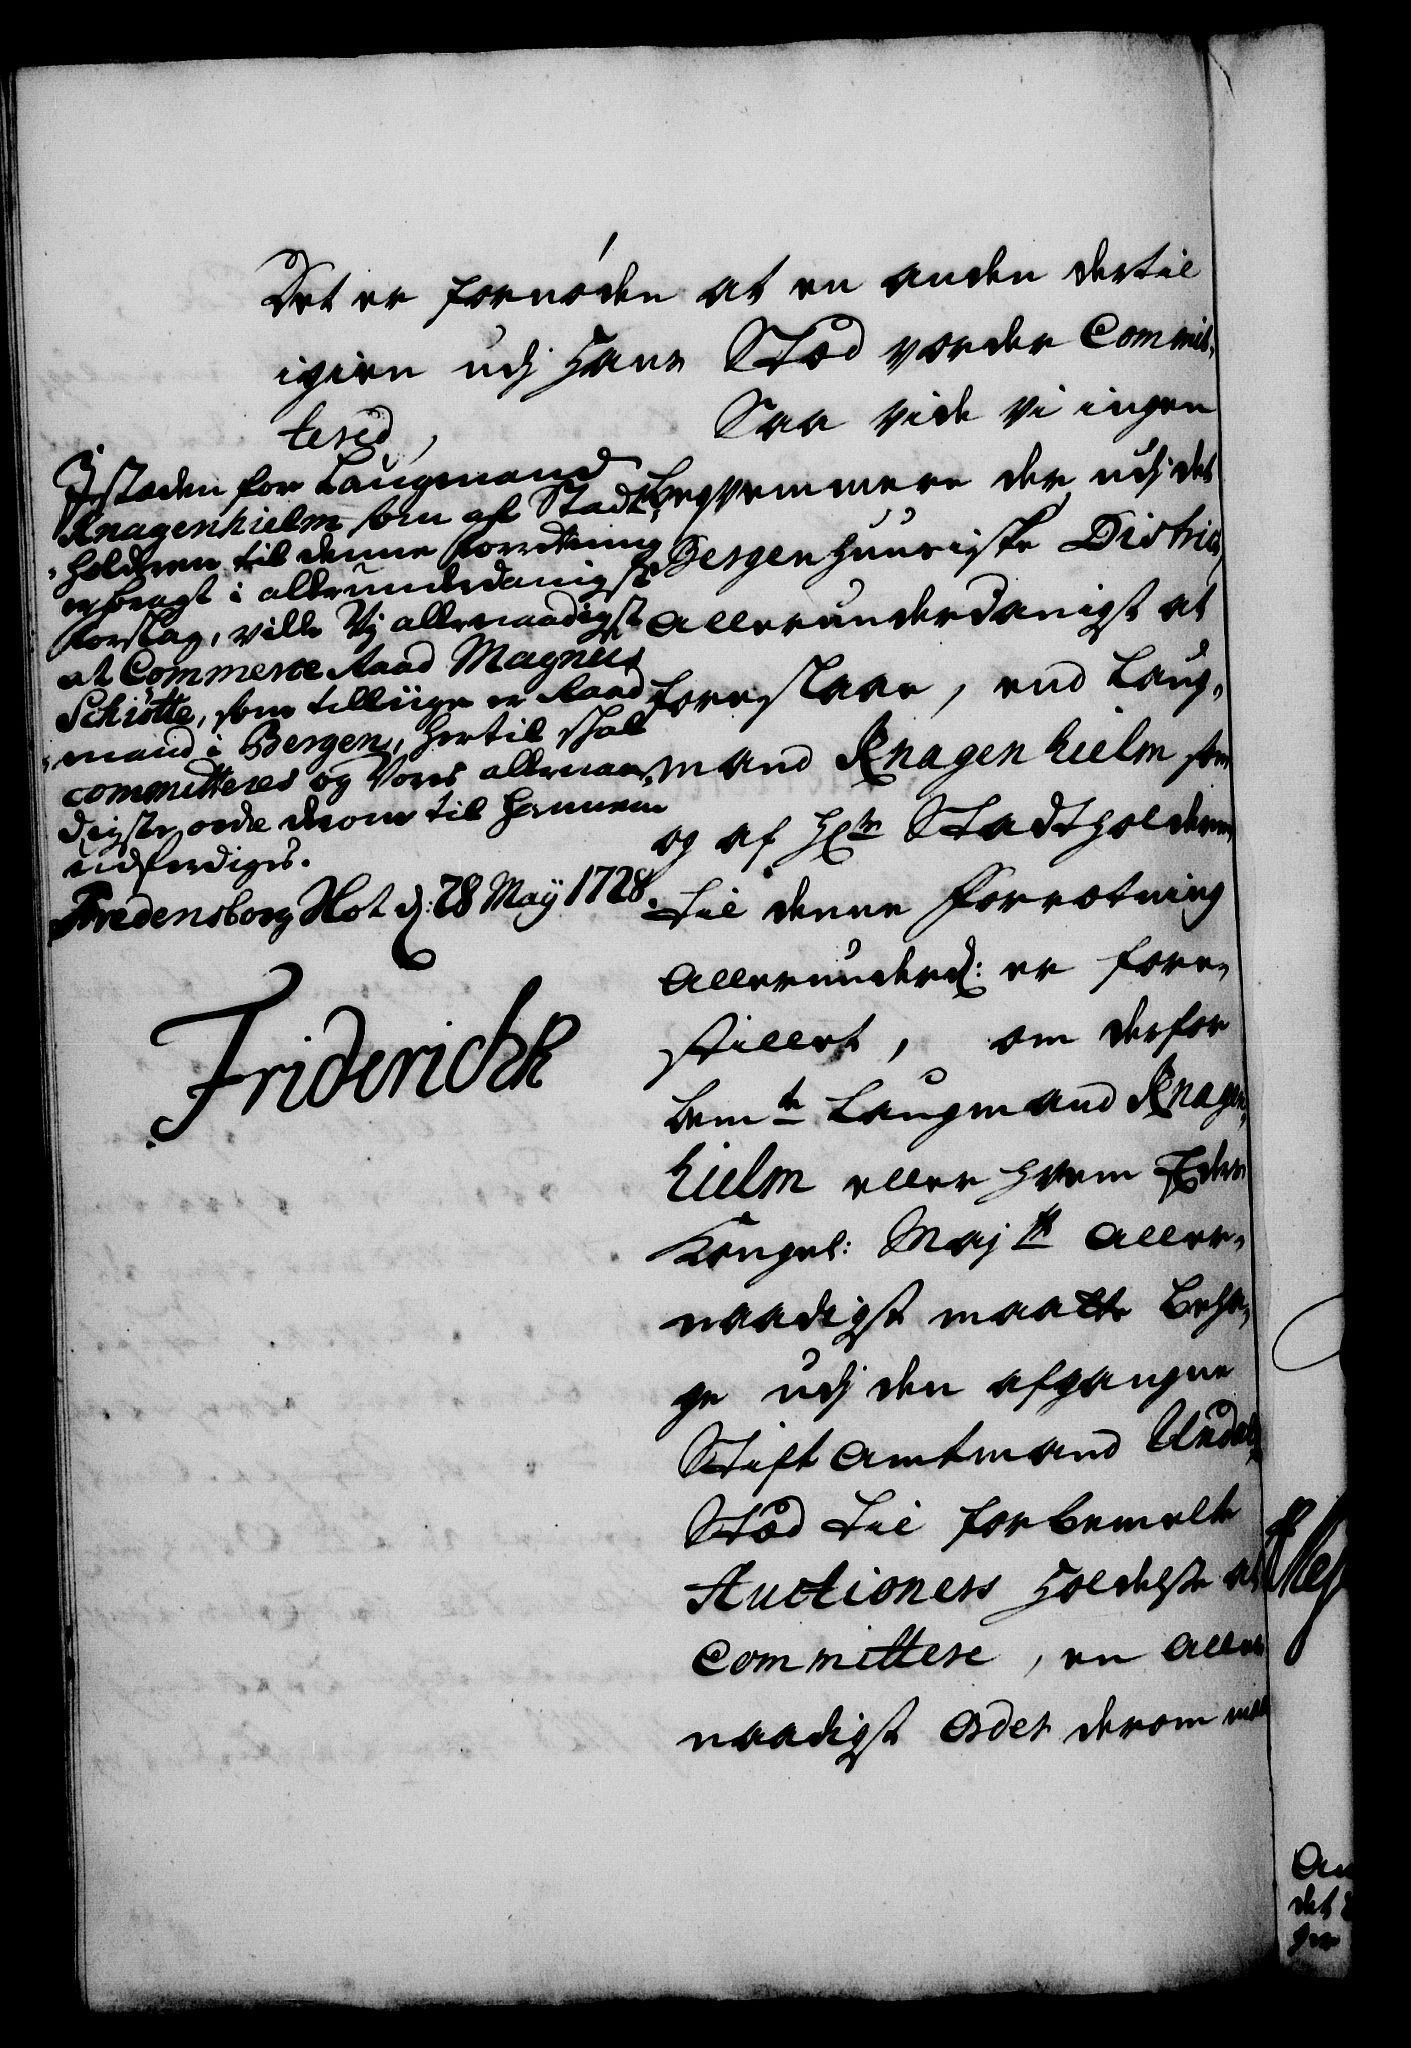 Det er fornöden at en anden dertil
igien udj Hans Stæd vorder Commit,
tered, Saa vide vi ingen
beqvemmere der udj det
Bergenhuusiske District,
allerunderdanigst at
foreslaae, end Laug,
mand Knagenhielm som
og af Hr: Stadtholderen
til denne Forretning
allerunderd: er fore,
stillet, om derfor
bemte Laugmand Knagen,
hielm eller hvem Eders
Kongel: Majts aller,
naadigst maatte beha,
ge udj den afgangne
Stift Amtmand Undals
Stæd til forbemelte
Auctioners Holdelse at
Committere, en Aller
naadigst Order derom
Jstæden for Laugmand
Knagenhielm som af Stadt,
holderen til denne forretning
er bragt i allerunderdanigste
forslag, ville Vj allernaadigst
at Commerce Raad Magnus
Schiötte, som tilliige er Raad
mand i Bergen, hertil skal
committeres og Vores allernaa,
digste ordre derom til hannem
udferdiges.
Fredensborg Slot d: 28 Maÿ 1728.
Friderich R